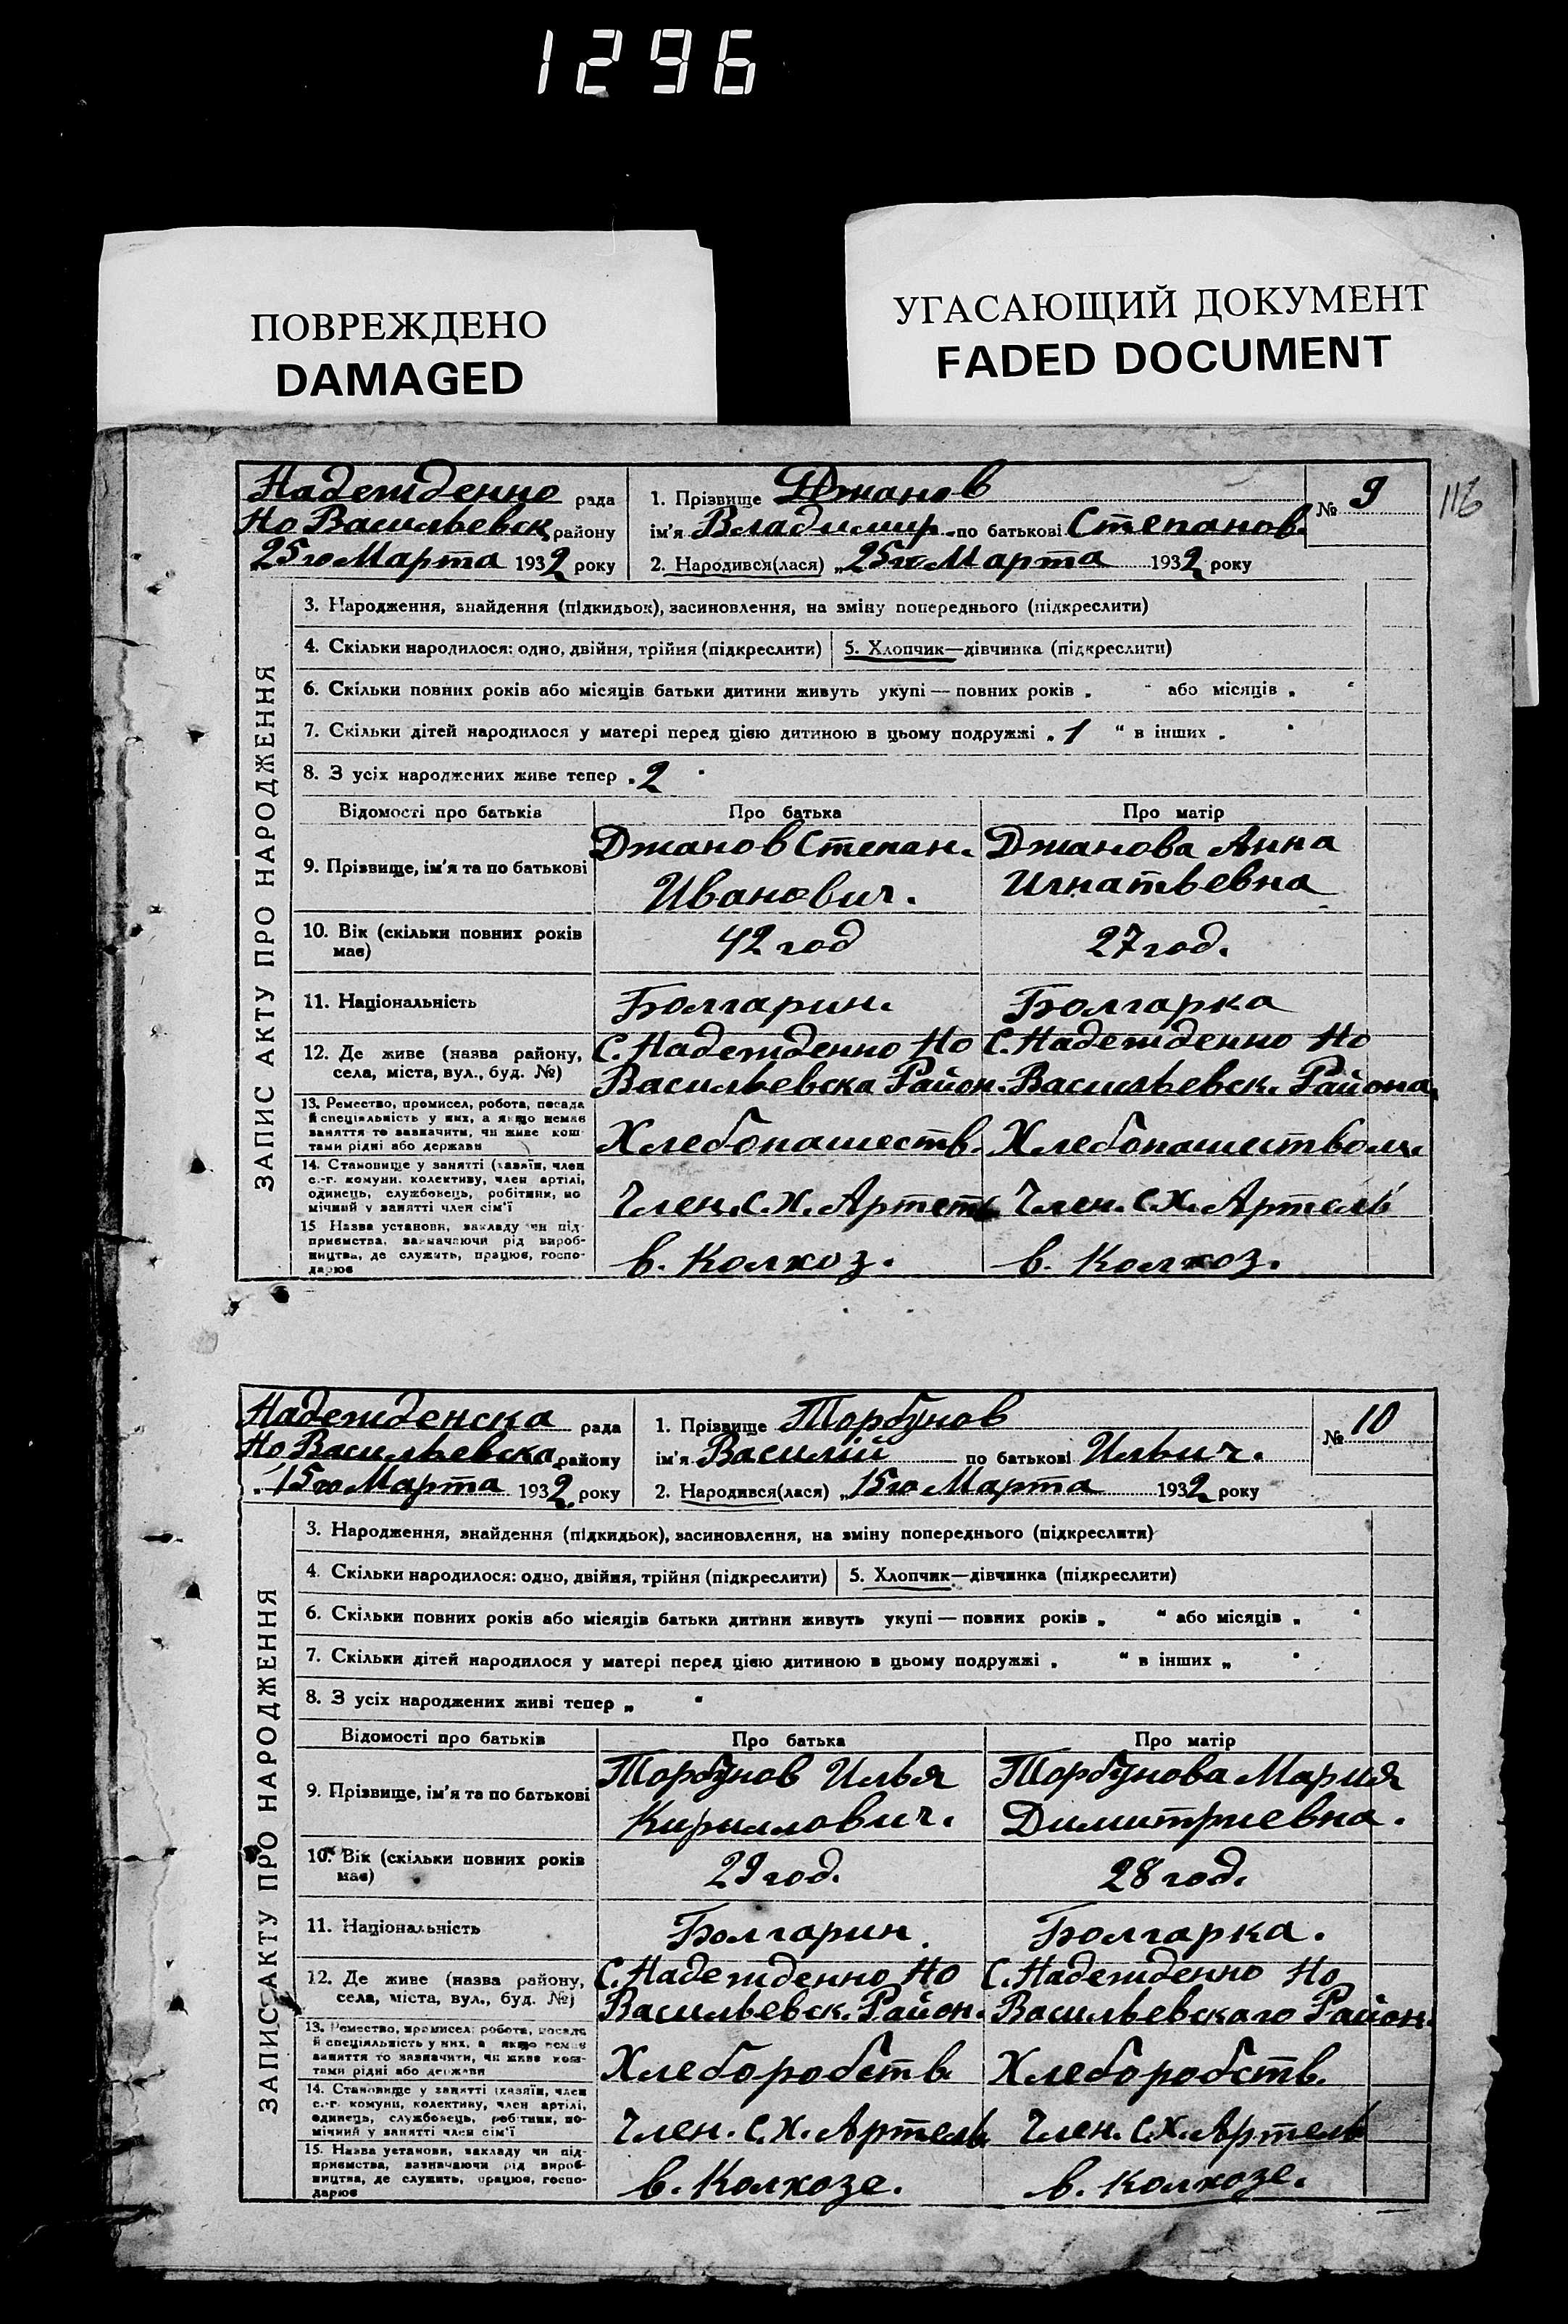 1296
ПОВРЕЖДЕНО
DAMAGED
УГАСАЮЩИЙ ДОКУМЕНТ
FADED DOCUMENT
116
Надежденно рада
Но Васильевск району
25го Марта 1932 року
1. Прізвище Джанов
ім'я Владимир по батькові Степанов.
2. Народився(лася) „25го Марта 1932 року
№ 9
ЗАПИС АКТУ ПРО НАРОДЖЕННЯ
3. Народження, знайдення (підкидьок), засиновлення, на зміну попереднього (підкреслити)
4. Скільки народилося: одно, двійня, трійня (підкреслити) 5. Хлопчик—дівчинка (підкреслити)
6. Скільки повних років або місяців батьки дитини живуть укупі — повних років „ “ або місяців „ “
7. Скільки дітей народилося у матері перед цією дитиною в цьому подружжі „ 1 “ в інших „ “
8. З усіх народжених живе тепер „ 2 “
Відомості про батьків Про батька Про матір
9. Прізвище, ім'я та по батькові
Джанов Степан.
Иванович.
Джанова Анна
Игнатьевна
10. Вік (скільки повних років
має)
42 год
27 год.
11. Національність
Болгарин.
Болгарка
12. Де живе (назва району,
села, міста, вул., буд. №)
С. Надежденно Но
Васильевска Район.
С. Надежденно Но
Васильевск. Района
13. Ремество, промисел, робота, посада
й спеціяльність у них, а якщо немає
заняття то зазначити, чи живе кош-
тами рідні або держави
Хлебопашеств.
Хлебопашеством.
14. Становище у занятті (хазяїн, член
с.-г. комуни, колективу, член артілі,
одинець, службовець, робітник, по
мічний у занятті член сім'ї
Член. С. Х. Артель
Член. С. Х. Артель
15 Назва установи, закладу чи під-
приємства, зазначаючи рід вироб-
ництва, де служить, працює, госпо-
дарює
в. Колхоз.
в. Колхоз.
Надежденска рада
Но Васильевска району
15го Марта 1932 року
1. Прізвище Торбунов
ім'я Василій по батькові Ильич.
2. Народився(лася) „15го Марта 1932 року
№ 10
ЗАПИС АКТУ ПРО НАРОДЖЕННЯ
3. Народження, знайдення (підкидьок), засиновлення, на зміну попереднього (підкреслити)
4. Скільки народилося: одно, двійня, трійня (підкреслити) 5. Хлопчик—дівчинка (підкреслити)
6. Скільки повних років або місяців батьки дитини живуть укупі — повних років „ “ або місяців „ “
7. Скільки дітей народилося у матері перед цією дитиною в цьому подружжі „ “ в інших „ “
8. З усіх народжених живі тепер „ “
Відомості про батьків Про батька Про матір
9. Прізвище, ім'я та по батькові
Торбунов Илья
Кириллович.
Торбунова Мария
Димитриевна.
10. Вік (скільки повних років
має)
29 год.
28 год.
11. Національність
Болгарин.
Болгарка.
12. Де живе (назва району,
села, міста, вул., буд. №)
С. Надежденно Но
Васильевск. Район.
С. Надежденно Но
Васильевскаго Район.
13. Ремество, промисел, робота, посада
й спеціяльність у них, а якщо немає
заняття то зазначити, чи живе кош-
тами рідні або держави
Хлеборобств.
Хлеборобств.
14. Становище у занятті (хазяїн, член
с.-г. комуни, колективу, член артілі,
одинець, службовець, робітник, по-
мічний у занятті член сім'ї
Член. С. Х. Артель
Член. С. Х. Артель
15. Назва установи, закладу чи під-
приємства, зазначаючи рід вироб-
ництва, де служить, працює, госпо-
дарює
в. Колхозе.
в. Колхозе.